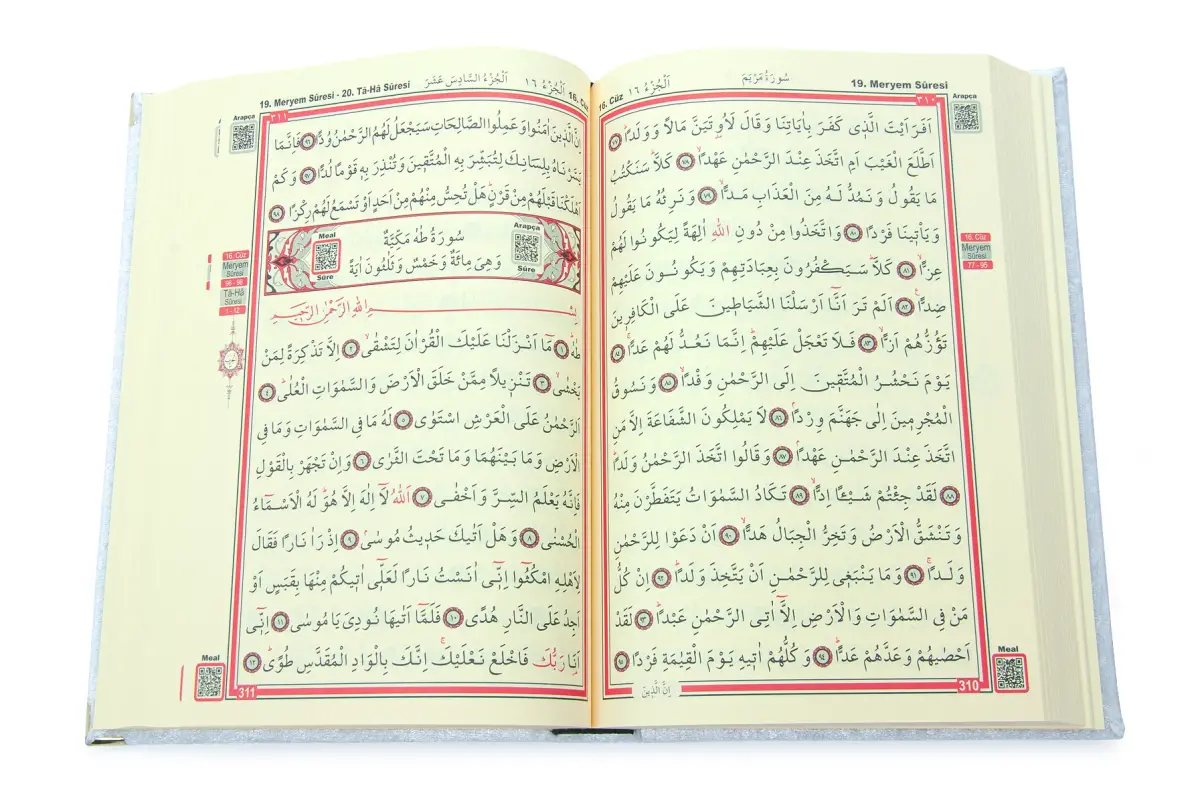 19. Meryem Sûresi
سُورَةُ مَرْيَمَ
اَلْجُزْءُ ١٦
16. Cüz
٣١٠
Arapça
اَفَرَاَيْتَ الَّذ۪ي كَفَرَ بِاٰيَاتِنَا وَقَالَ لَاُو۫تَيَنَّ مَالاً وَوَلَداًۜ ﴿٧٧﴾
اَطَّلَعَ الْغَيْبَ اَمِ اتَّخَذَ عِنْدَ الرَّحْمٰنِ عَهْداًۙ ﴿٧٨﴾ كَلَّاۜ سَنَكْتُبُ
مَا يَقُولُ وَنَمُدُّ لَهُ مِنَ الْعَذَابِ مَداًّۙ ﴿٧٩﴾ وَنَرِثُهُ مَا يَقُولُ
وَيَأْت۪ينَا فَرْداً ﴿٨٠﴾ وَاتَّخَذُوا مِنْ دُونِ اللّٰهِ اٰلِهَةً لِيَكُونُوا لَهُمْ
عِزاًّۙ ﴿٨١﴾ كَلَّاۜ سَيَكْفُرُونَ بِعِبَادَتِهِمْ وَيَكُونُونَ عَلَيْهِمْ
ضِداًّ۟ ﴿٨٢﴾ اَلَمْ تَرَ اَنَّٓا اَرْسَلْنَا الشَّيَاط۪ينَ عَلَى الْكَافِر۪ينَ
تَؤُزُّهُمْ اَزاًّۙ ﴿٨٣﴾ فَلَا تَعْجَلْ عَلَيْهِمْۜ اِنَّمَا نَعُدُّ لَهُمْ عَداًّۚ ﴿٨٤﴾
يَوْمَ نَحْشُرُ الْمُتَّق۪ينَ اِلَى الرَّحْمٰنِ وَفْداًۙ ﴿٨٥﴾ وَنَسُوقُ
الْمُجْرِم۪ينَ اِلٰى جَهَنَّمَ وِرْداًۢ ﴿٨٦﴾ لَا يَمْلِكُونَ الشَّفَاعَةَ اِلَّا مَنِ
اتَّخَذَ عِنْدَ الرَّحْمٰنِ عَهْداًۢ ﴿٨٧﴾ وَقَالُوا اتَّخَذَ الرَّحْمٰنُ وَلَداًۜ
﴿٨٨﴾ لَقَدْ جِئْتُمْ شَيْـٔاً اِداًّۙ ﴿٨٩﴾ تَكَادُ السَّمٰوَاتُ يَتَفَطَّرْنَ مِنْهُ
وَتَنْشَقُّ الْاَرْضُ وَتَخِرُّ الْجِبَالُ هَداًّۙ ﴿٩٠﴾ اَنْ دَعَوْا لِلرَّحْمٰنِ
وَلَداًۚ ﴿٩١﴾ وَمَا يَنْبَغ۪ي لِلرَّحْمٰنِ اَنْ يَتَّخِذَ وَلَداًۜ ﴿٩٢﴾ اِنْ كُلُّ
مَنْ فِي السَّمٰوَاتِ وَالْاَرْضِ اِلَّٓا اٰتِي الرَّحْمٰنِ عَبْداًۜ ﴿٩٣﴾ لَقَدْ
اَحْصٰيهُمْ وَعَدَّهُمْ عَداًّۜ ﴿٩٤﴾ وَكُلُّهُمْ اٰت۪يهِ يَوْمَ الْقِيٰمَةِ فَرْداً ﴿٩٥﴾
16. Cüz
Meryem
Sûresi
77 - 95
Meal
310
اِنَّ الَّذ۪ينَ
16. Cüz
اَلْجُزْءُ ١٦
اَلْجُزْءُ السَّادِسَ عَشَرَ
19. Meryem Sûresi - 20. Tâ-Hâ Sûresi
٣١١
Arapça
اِنَّ الَّذ۪ينَ اٰمَنُوا وَعَمِلُوا الصَّالِحَاتِ سَيَجْعَلُ لَهُمُ الرَّحْمٰنُ وُداًّ ﴿٩٦﴾ فَاِنَّمَا
يَسَّرْنَاهُ بِلِسَانِكَ لِتُبَشِّرَ بِهِ الْمُتَّق۪ينَ وَتُنْذِرَ بِه۪ قَوْماً لُداًّ ﴿٩٧﴾ وَكَمْ
اَهْلَكْنَا قَبْلَهُمْ مِنْ قَرْنٍۜ هَلْ تُحِسُّ مِنْهُمْ مِنْ اَحَدٍ اَوْ تَسْمَعُ لَهُمْ رِكْزاً ﴿٩٨﴾
Arapça
Sûre
سُورَةُ طٰهٰ مَكِّيَّةٌ
وَهِيَ مِائَةٌ وَخَمْسٌ وَثَلٰثُونَ اٰيَةً
Meal
Sûre
بِسْمِ اللّٰهِ الرَّحْمٰنِ الرَّح۪يمِ
طٰهٰۜ ﴿١﴾ مَٓا اَنْزَلْنَا عَلَيْكَ الْقُرْاٰنَ لِتَشْقٰىۙ ﴿٢﴾ اِلَّا تَذْكِرَةً لِمَنْ
يَخْشٰىۙ ﴿٣﴾ تَنْز۪يلاً مِمَّنْ خَلَقَ الْاَرْضَ وَالسَّمٰوَاتِ الْعُلٰىۜ ﴿٤﴾
اَلرَّحْمٰنُ عَلَى الْعَرْشِ اسْتَوٰى ﴿٥﴾ لَهُ مَا فِي السَّمٰوَاتِ وَمَا فِي
الْاَرْضِ وَمَا بَيْنَهُمَا وَمَا تَحْتَ الثَّرٰى ﴿٦﴾ وَاِنْ تَجْهَرْ بِالْقَوْلِ
فَاِنَّهُ يَعْلَمُ السِّرَّ وَاَخْفٰى ﴿٧﴾ اَللّٰهُ لَٓا اِلٰهَ اِلَّا هُوَۜ لَهُ الْاَسْمَٓاءُ
الْحُسْنٰى ﴿٨﴾ وَهَلْ اَتٰيكَ حَد۪يثُ مُوسٰىۢ ﴿٩﴾ اِذْ رَاٰ نَاراً فَقَالَ
لِاَهْلِهِ امْكُثُٓوا اِنّ۪ٓي اٰنَسْتُ نَاراً لَعَلّ۪ٓي اٰت۪يكُمْ مِنْهَا بِقَبَسٍ اَوْ
اَجِدُ عَلَى النَّارِ هُدًى ﴿١٠﴾ فَلَمَّٓا اَتٰيهَا نُودِيَ يَا مُوسٰى ﴿١١﴾ اِنّ۪ٓي
اَنَا۬ رَبُّكَ فَاخْلَعْ نَعْلَيْكَۚ اِنَّكَ بِالْوَادِ الْمُقَدَّسِ طُوًىۜ ﴿١٢﴾
16. Cüz
Meryem
Sûresi
96 - 98
Tâ-Hâ
Sûresi
1 - 12
Meal
311